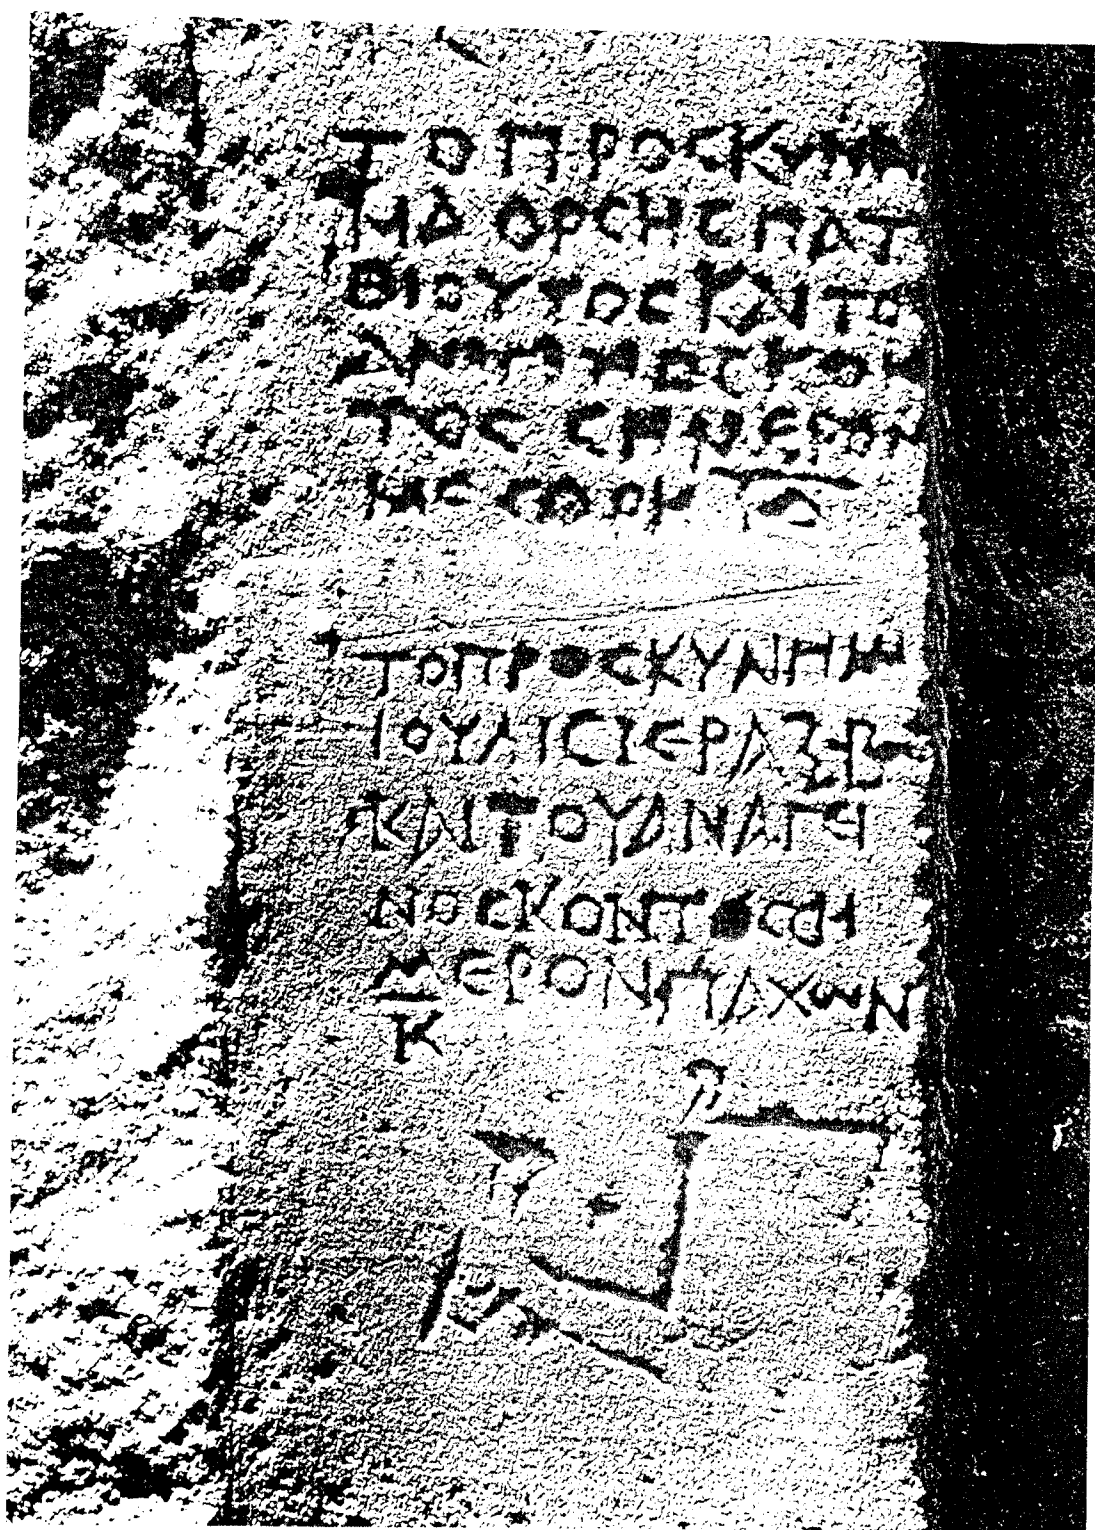 ΤΟΠΡΟΣΚΥΝΗ
ΜΑ ΟΡΣΗΣ ΠΑΤ
ΒΙΟΥΤΟΣ ΚΑΙ ΤΟ
ΤΟΣ ΣΗΜΕΡΟΝ
ΤΟΠΡΟΣΚΥΝΗΜ
ΙΟΥΛΙΣ ΙΕΡΑΞ
ΚΑΙ ΤΟΥ ΑΝΑΓΕΙ
ΝΟΣΚΟΝΤΟΣ ΣΗ
ΜΕΡΟΝ ΠΑΧΩΝ
Κ